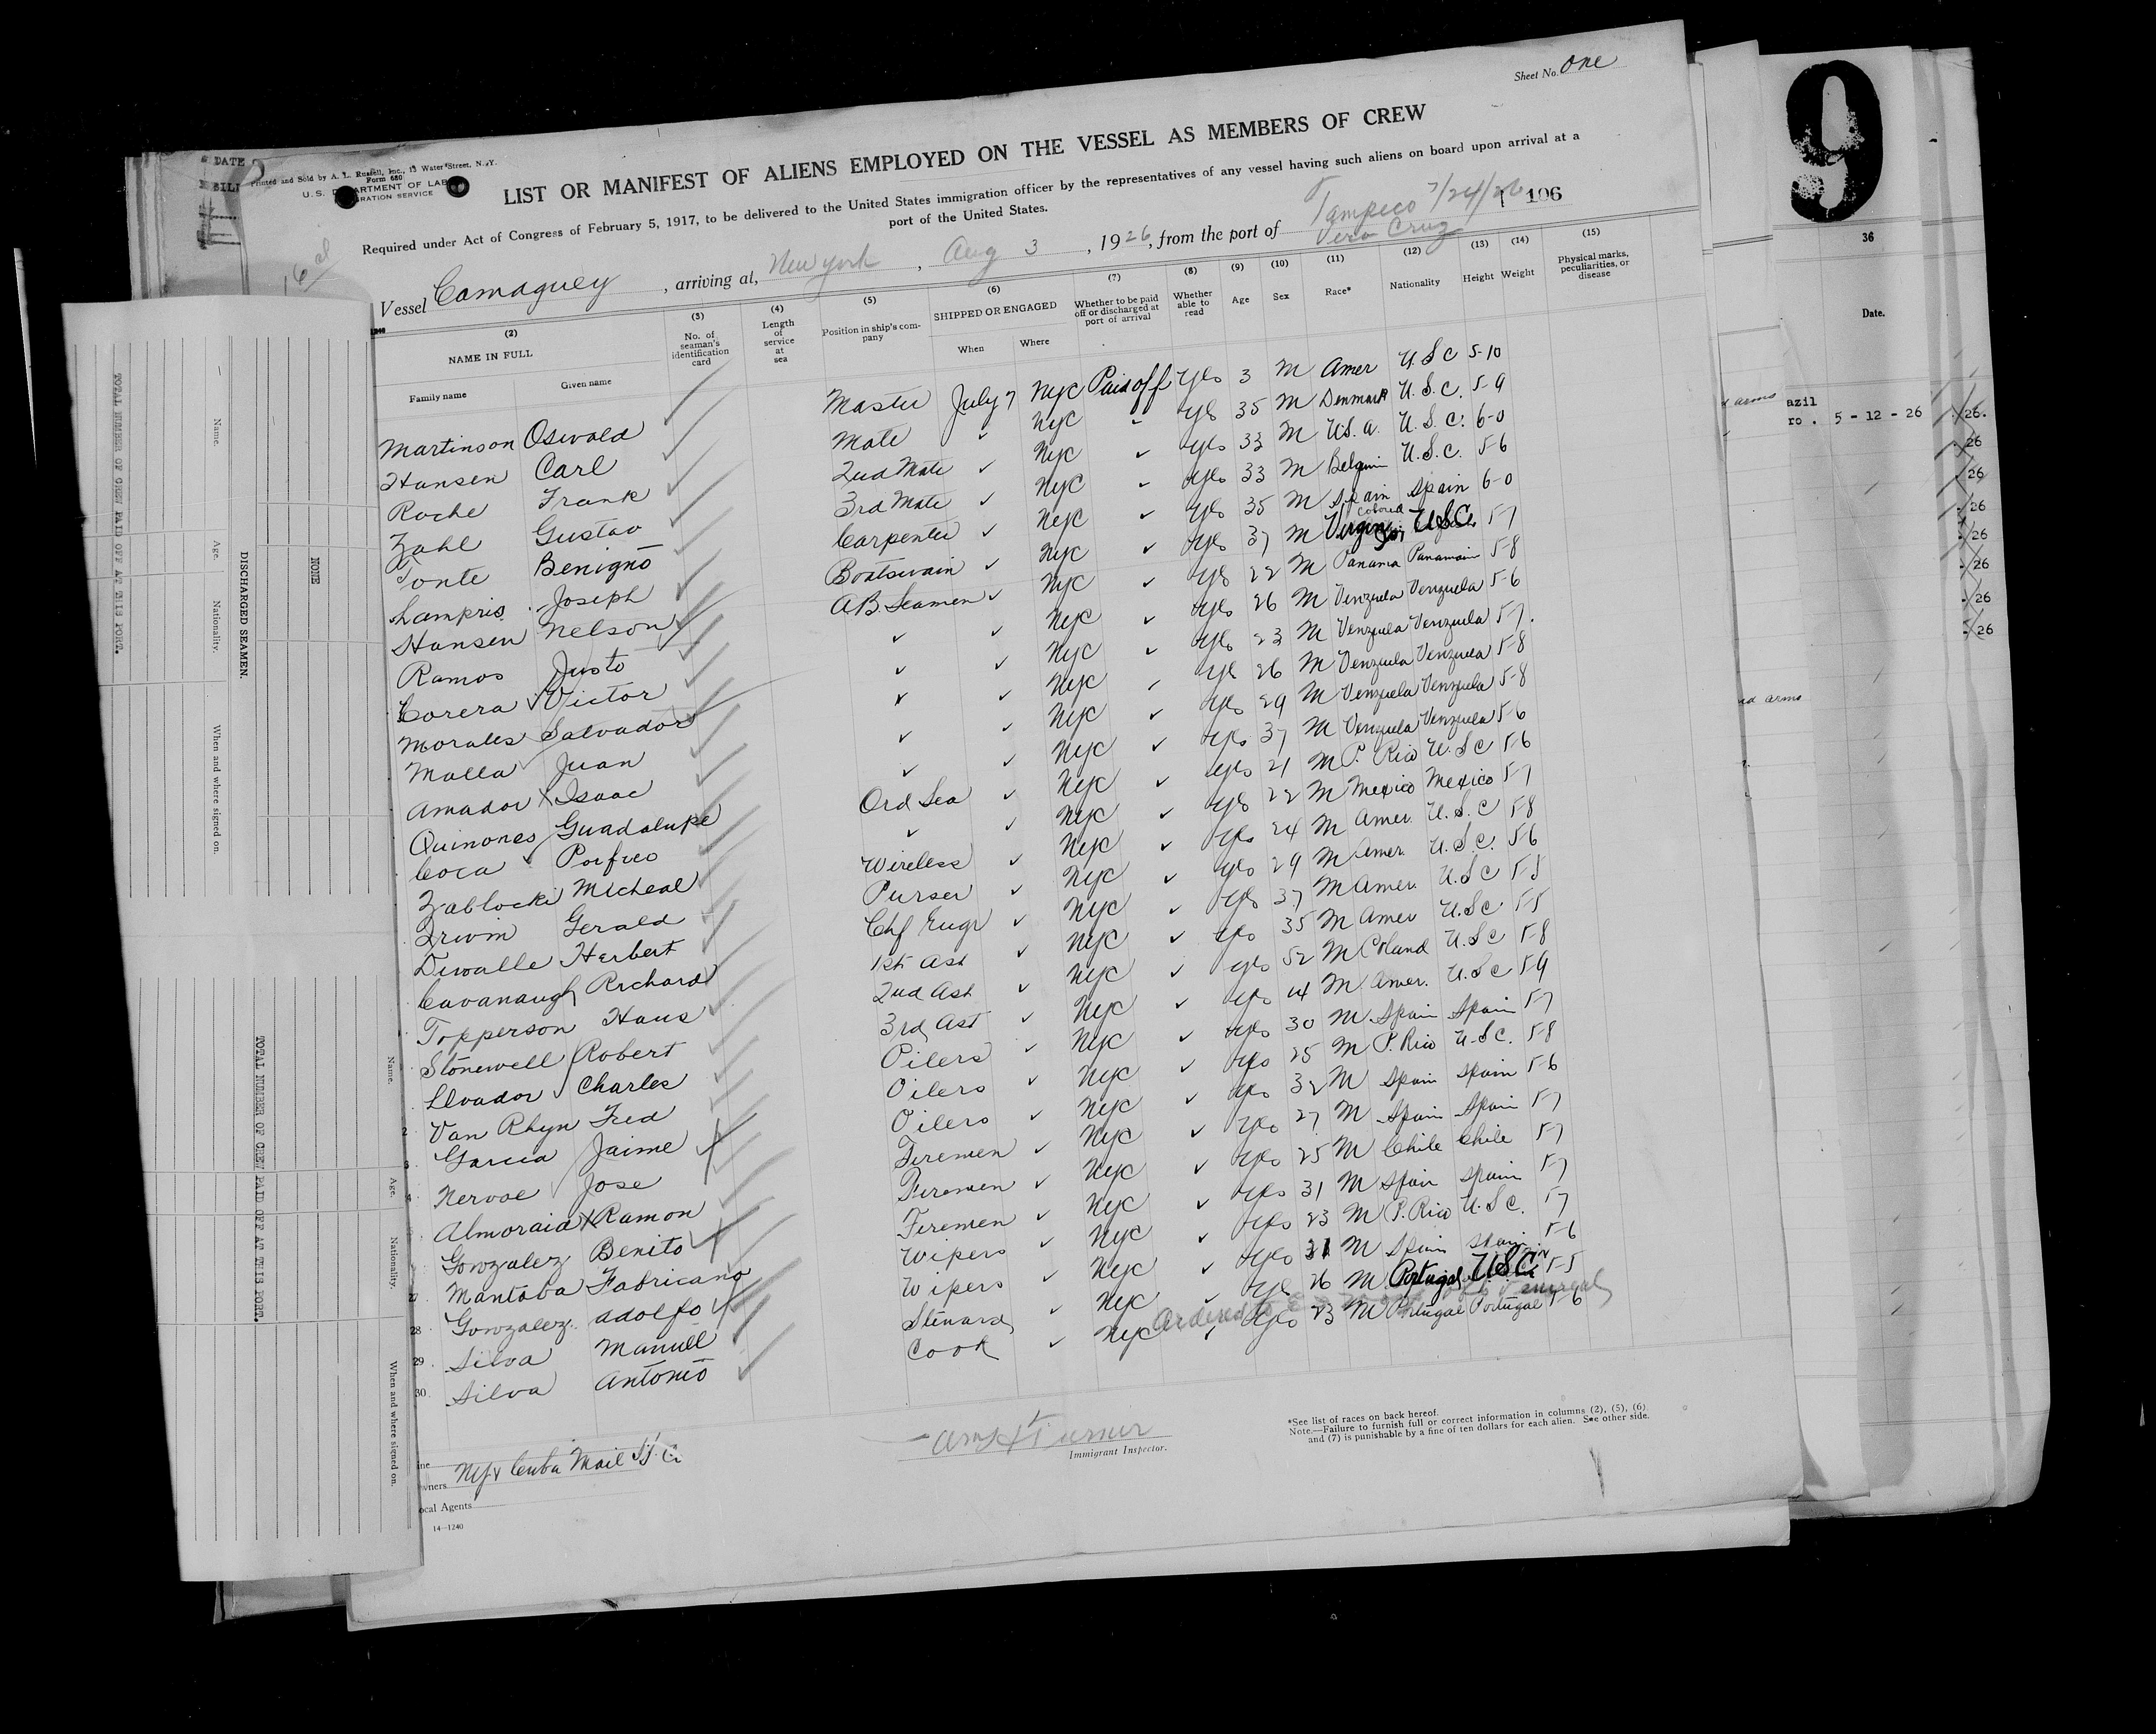 Sheet No. One
Printed and Sold by A. L. Russell, Inc., 13 Water Street, N.Y.
Form 680
U. S. DEPARTMENT OF LABOR
IMMIGRATION SERVICE
LIST OR MANIFEST OF ALIENS EMPLOYED ON THE VESSEL AS MEMBERS OF CREW
Required under Act of Congress of February 5, 1917, to be delivered to the United States immigration officer by the representatives of any vessel having such aliens on board upon arrival at a
port of the United States.
106
Vessel Camaguey, arriving at, New york, Aug 3, 1926, from the port of Tampico 7/24/26
Vera Cruz
(2) (3) (4) (5) (6) (7) (8) (9) (10) (11) (12) (13) (14) (15)
NAME IN FULL
Family name Given name
No. of seaman's identification card
Length of service at sea
Position in ship's company
SHIPPED OR ENGAGED
When Where
Whether to be paid off or discharged at port of arrival
Whether able to read
Age Sex Race* Nationality Height Weight
Physical marks, peculiarities, or disease
Martinson Oswald Master July 7 NYC Paid off Yes 3 M Amer U.S.C 5-10
Hansen Carl Mate ✓ NYC ✓ Yes 35 M Denmark U.S.C. 5-9
Roche Frank 2nd Mate ✓ NYC ✓ Yes 33 M U.S.A. U.S.C. 6-0
Zahl Gustav 3rd Mate ✓ NYC ✓ Yes 33 M Belgium U.S.C. 5-6
Tonte Benigno Carpenter ✓ NYC ✓ Yes 35 M Spain Spain 6-0
Lampris Joseph Boatswain ✓ NYC ✓ Yes 37 M Colored USC 5-7
Hansen Nelson A.B. Seamen ✓ NYC ✓ Yes 22 M Panama Panamain 5-8
Ramos Justo ✓ ✓ NYC ✓ Yes 26 M Venzuela Venzuela 5-6
Corera Victor ✓ ✓ NYC ✓ Yes 23 M Venzuela Venzuela 5-7
Morales Salvador ✓ ✓ NYC ✓ Yes 26 M Venzuela Venzuela 5-8
Malla Juan ✓ ✓ NYC ✓ Yes 29 M Venzuela Venzuela 5-8
Amador Isaac ✓ ✓ NYC ✓ Yes 37 M Venzuela Venzuela 5-6
Quinones Guadalupe Ord Sea ✓ NYC ✓ Yes 21 M P. Rico U.S.C 5-6
Coca Porfreo ✓ ✓ NYC ✓ Yes 22 M Mexico Mexico 5-7
Zablocki Micheal Wireless ✓ NYC ✓ Yes 24 M Amer. U.S.C 5-8
Irwin Gerald Purser ✓ NYC ✓ Yes 29 M Amer. U.S.C. 5-6
Dewalle Herbert Chf Engr ✓ NYC ✓ Yes 37 M Amer. U.S.C 5-5
Cavanaugh Richard 1st Ast ✓ NYC ✓ Yes 35 M Amer U.S.C 5-5
Topperson Hans 2nd Ast ✓ NYC ✓ Yes 52 M U.S.C 5-8
Stonewell Robert 3rd Ast ✓ NYC ✓ Yes M Amer. U.S.C 5-9
Llvador Charles Oilers ✓ NYC ✓ Yes 30 M Spain Spain 5-7
Van Rhyn Fred Oilers ✓ NYC ✓ Yes 25 M P. Rico U.S.C. 5-8
Garcia Jaime Oilers ✓ NYC ✓ Yes 32 M Spain Spain 5-6
Nervoe Jose Firemen ✓ NYC ✓ Yes 27 M Spain Spain 5-7
Almoraid Ramon Firemen ✓ NYC ✓ Yes 25 M Chile Chile 5-7
Gowzalez Benito Firemen ✓ NYC ✓ Yes 31 M Spain Spain 5-7
27 Mantaba Fabricano Wipers ✓ NYC ✓ Yes 23 M P. Rico U.S.C. 5-7
28 Gowzalez Adolfo Wipers ✓ NYC ✓ Yes 31 M Spain Spain 5-6
29. Silva Manuel Steward ✓ NYC Yes 26 M Portugal USC 5-5
30. Silva Antonio Cook ✓ NYC ✓ Yes 23 M Portugal Portugal 5-6
Ordered to
Immigrant Inspector.
*See list of races on back hereof.
Note.—Failure to furnish full or correct information in columns (2), (5), (6),
and (7) is punishable by a fine of ten dollars for each alien. See other side.
Owners NY & Cuba Mail SS. Co
Local Agents
14—1240
TOTAL NUMBER OF CREW PAID OFF AT THIS PORT.
Name. Age. Nationality. When and where signed on.
DISCHARGED SEAMEN.
NONE
TOTAL NUMBER OF CREW PAID OFF AT THIS PORT.
Name. Age. Nationality. When and where signed on.
DATE
9
36
Date.
arms
azil
ro . 5 - 12 - 26
26.
26
26
26
26
26
26
26
arms